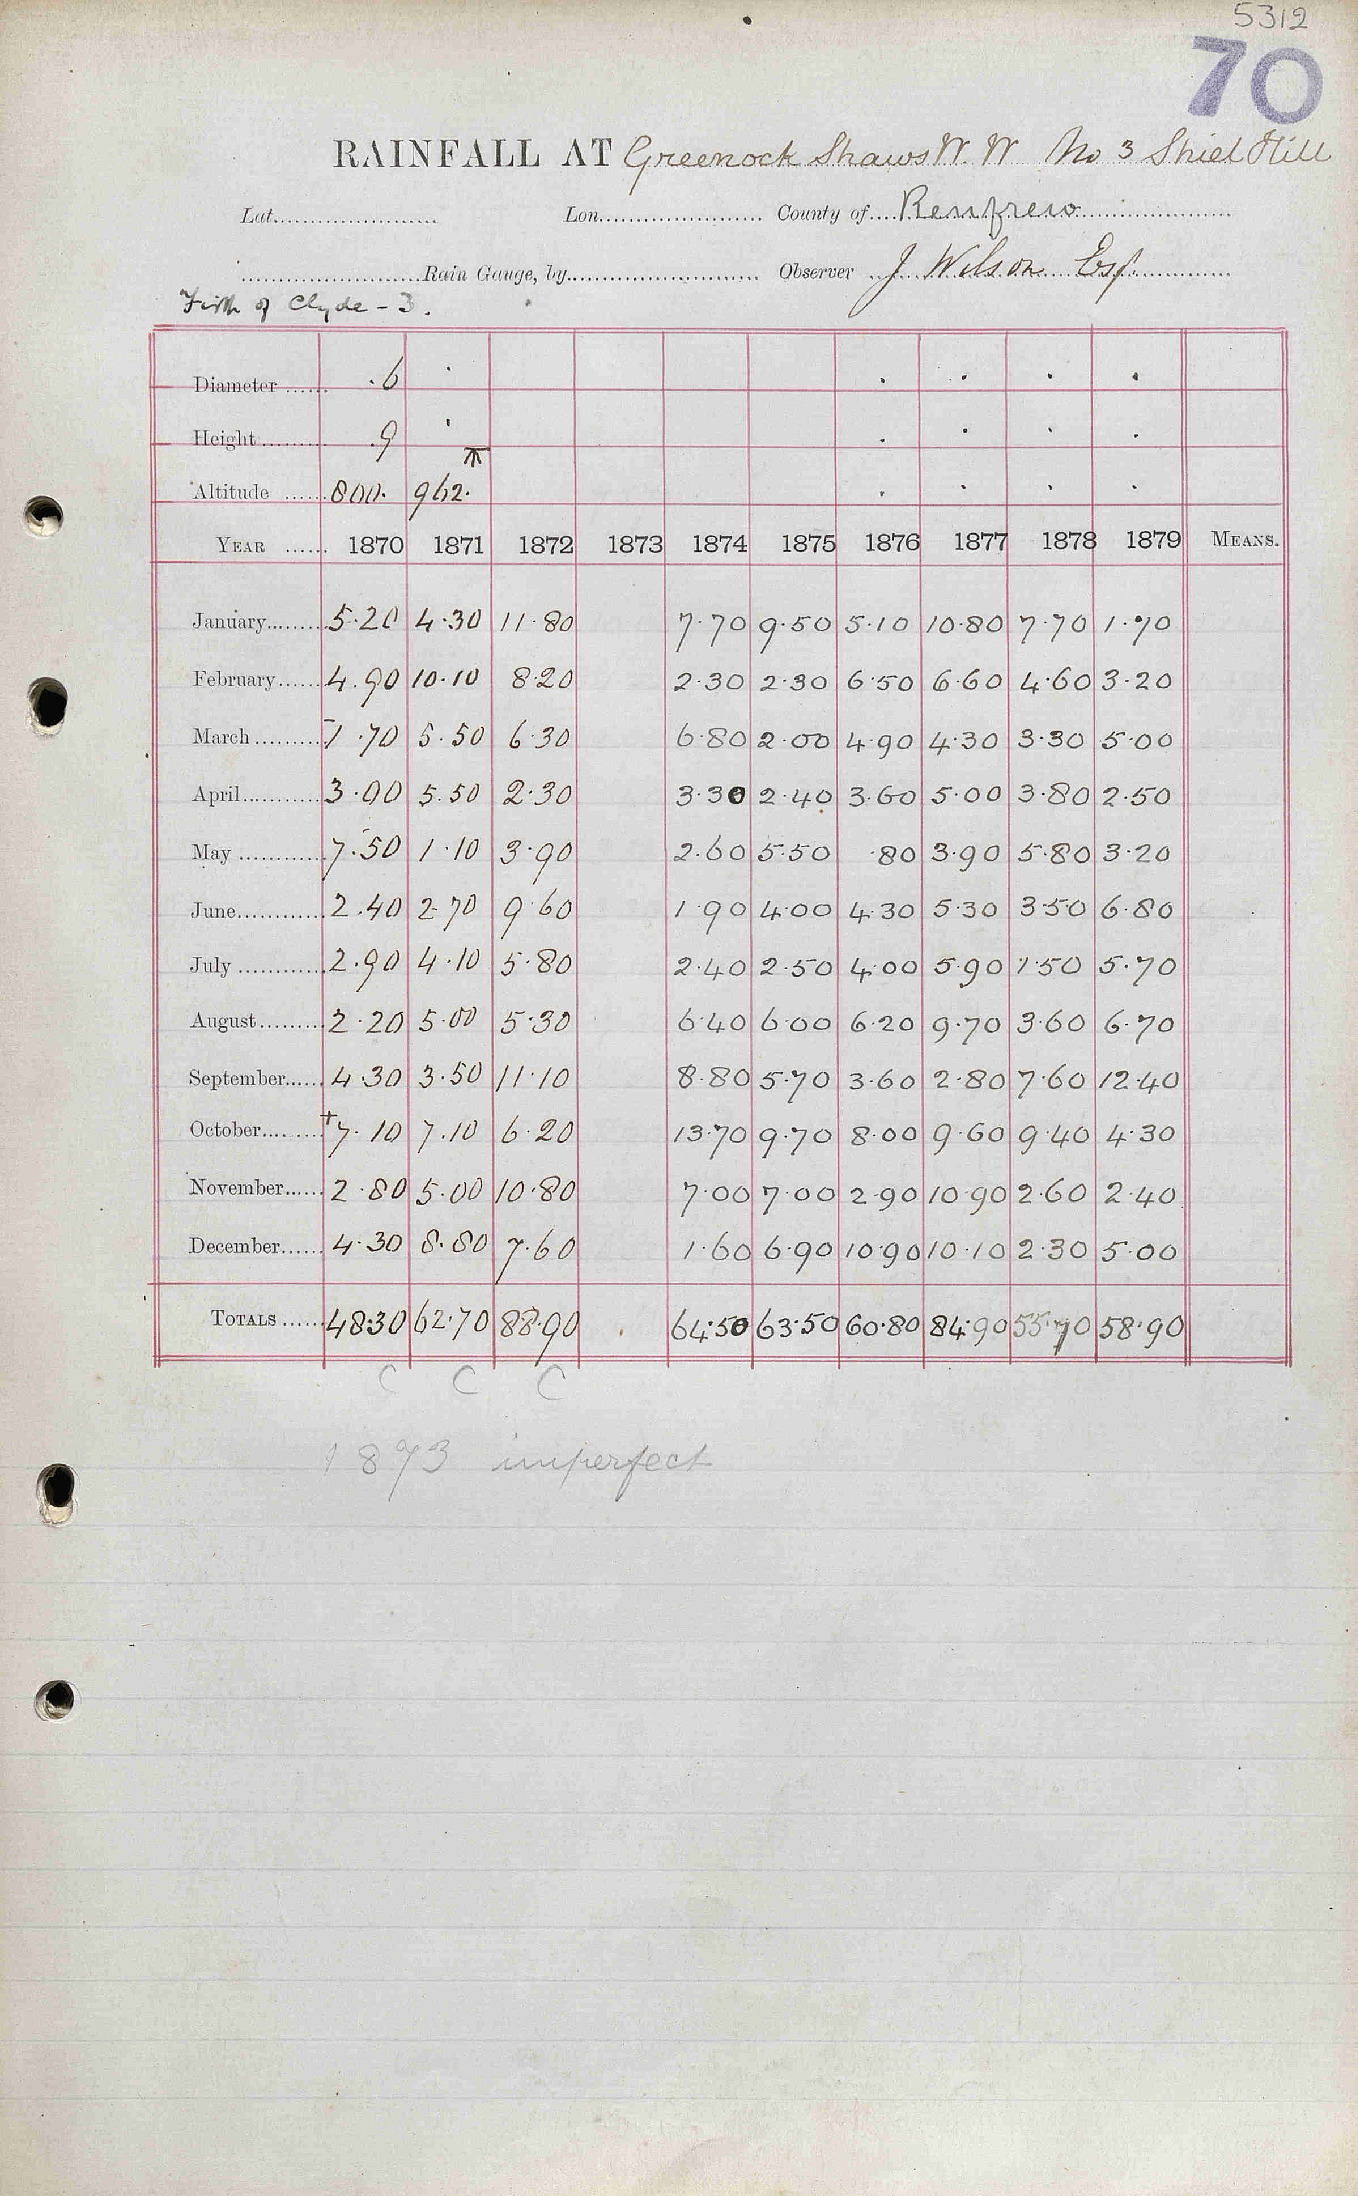 5312
70
RAINFALL AT Greenock Shaws W. W No 3 Shiel Hill
Lat. Lon. County of Renfrew
Rain Gauge, by Observer J Wilson Esq.
Firth of Clyde - 3.
Diameter .6
Height .9
Altitude 800. 962.
YEAR 1870 1871 1872 1873 1874 1875 1876 1877 1878 1879 MEANS.
January 5.20 4.30 11.80 7.70 9.50 5.10 10.80 7.70 1.70
February 4.90 10.10 8.20 2.30 2.30 6.50 6.60 4.60 3.20
March 1.70 5.50 6.30 6.80 2.00 4.90 4.30 3.30 5.00
April 3.00 5.50 2.30 3.30 2.40 3.60 5.00 3.80 2.50
May 7.50 1.10 3.90 2.60 5.50 .80 3.90 5.80 3.20
June 2.40 2.70 9.60 1.90 4.00 4.30 5.30 3.50 6.80
July 2.90 4.10 5.80 2.40 2.50 4.00 5.90 1.50 5.70
August 2.20 5.00 5.30 6.40 6.00 6.20 9.70 3.60 6.70
September 4.30 3.50 11.10 8.80 5.70 3.60 2.80 7.60 12.40
October +7.10 7.10 6.20 13.70 9.70 8.00 9.60 9.40 4.30
November 2.80 5.00 10.80 7.00 7.00 2.90 10.90 2.60 2.40
December 4.30 8.80 7.60 1.60 6.90 10.90 10.10 2.30 5.00
TOTALS 48.30 62.70 88.90 64.50 63.50 60.80 84.90 55.70 58.90
C C C
1873 imperfect